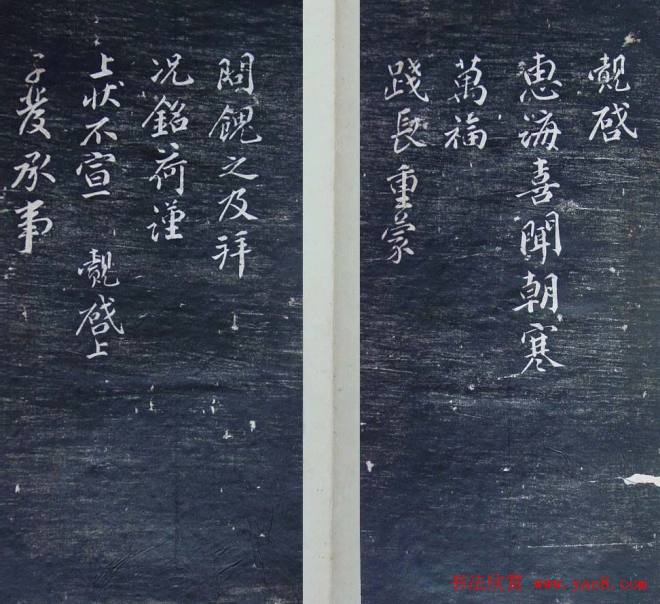 觌启
惠海喜闻朝寒
萬福
践長重蒙
問餽之及拜
况銘荷謹
上状不宣 觌啓上
子發承事
书法欣赏 www.yac8.com